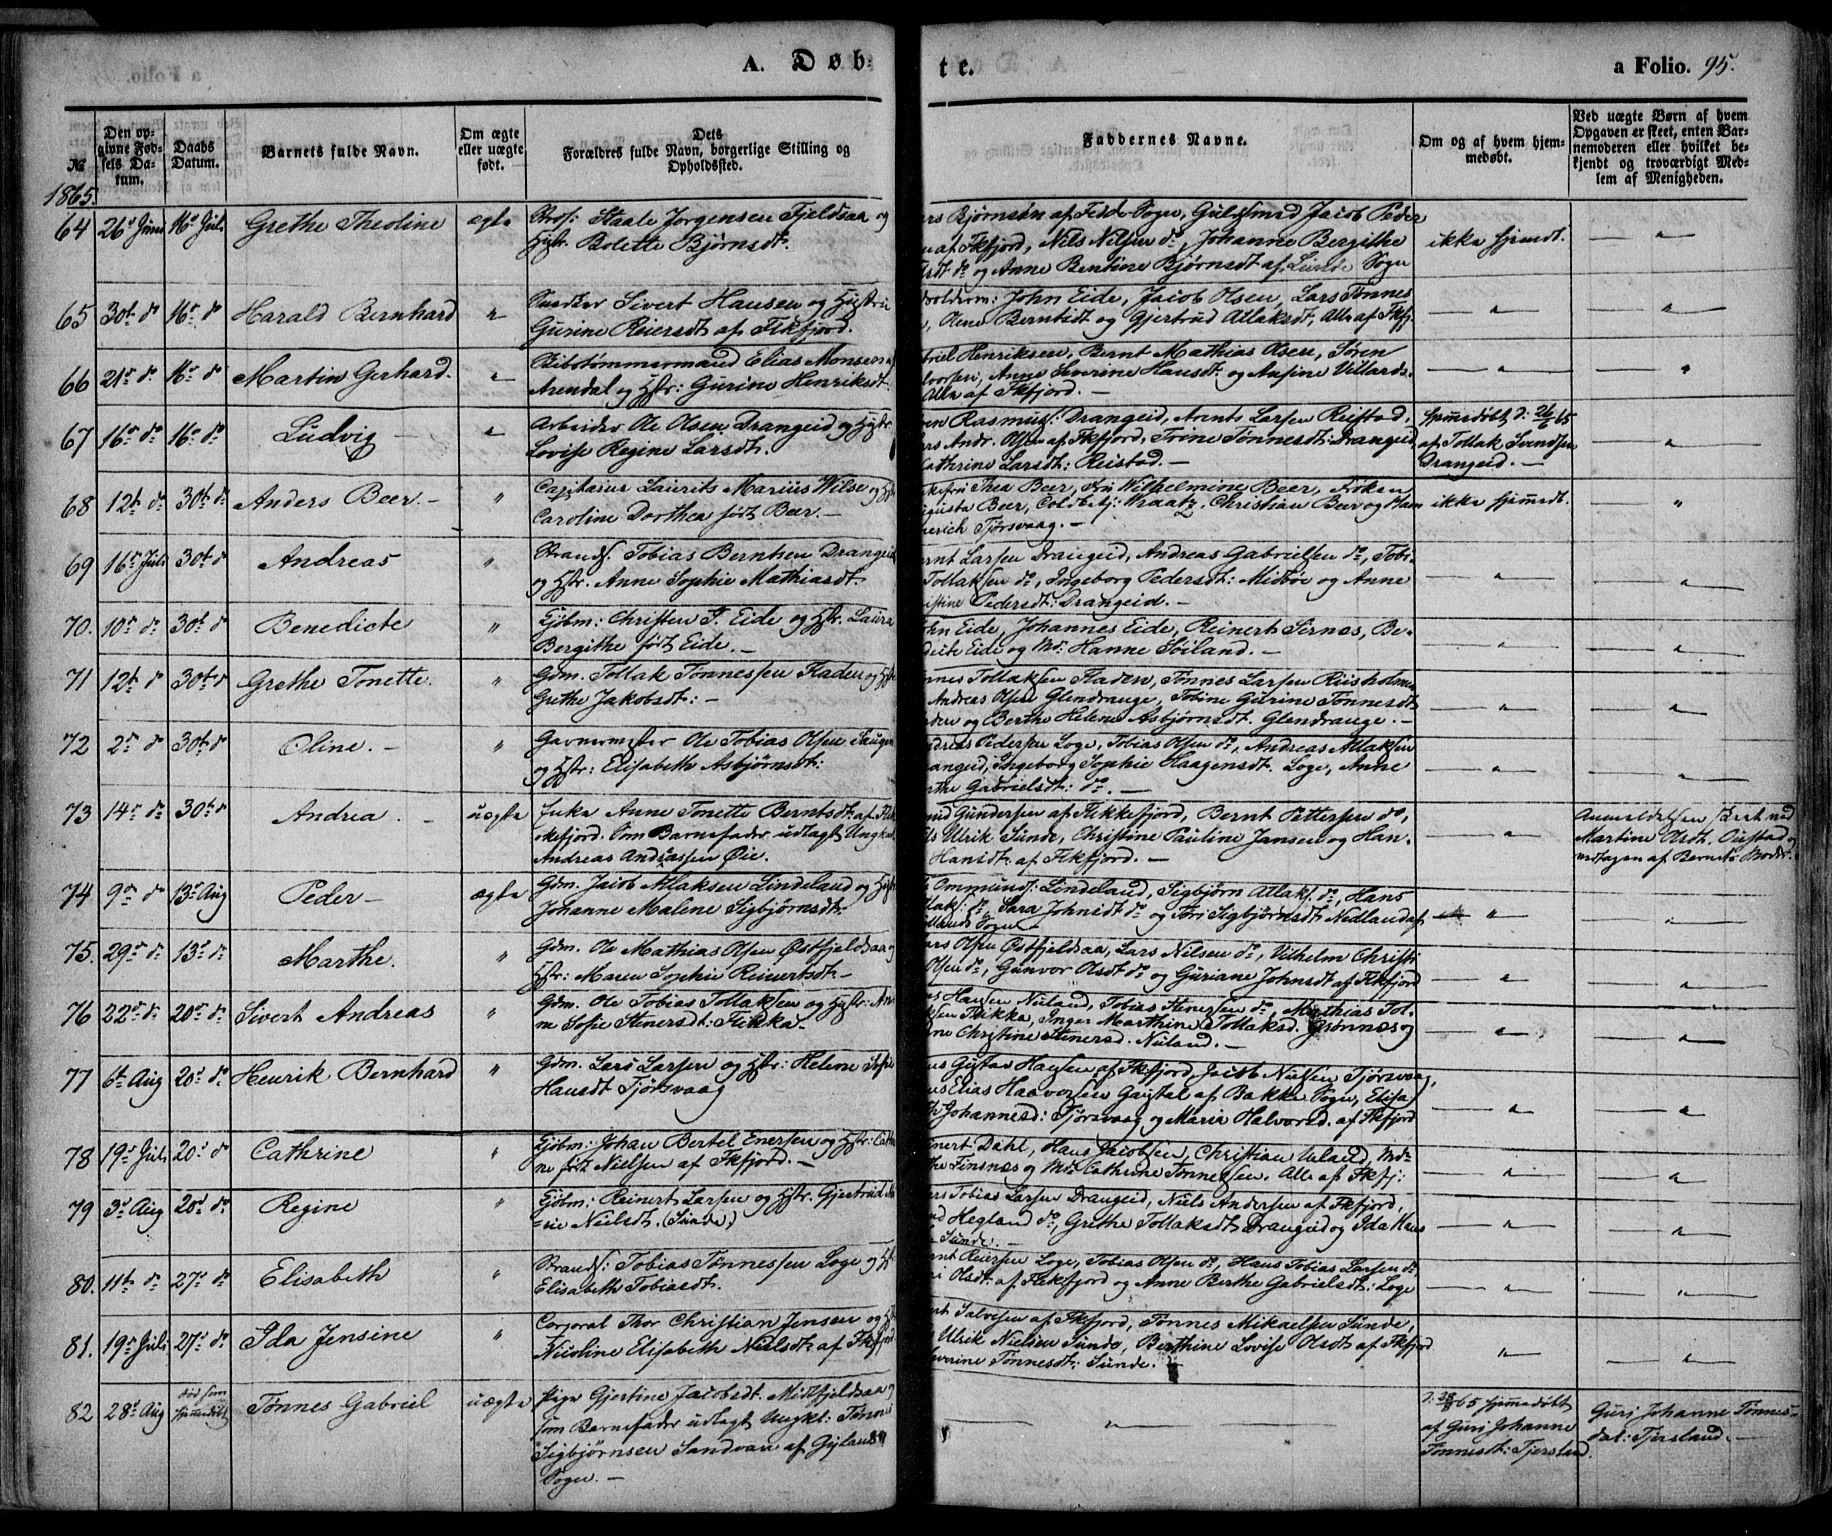 A. Døb-
te.
a Folio. 95.
№
Den op-
givne Fød-
sels Da-
tum.
Daabs
Datum.
Barnets fulde Navn.
Om ægte
eller uægte
født.
Dets
Forældres fulde Navn, borgerlige Stilling og
Opholdssted.
Faddernes Navne.
Om og af hvem hjem-
medøbt.
Ved uægte Børn af hvem
Opgaven er skeet, enten Bar-
nemoderen eller hvilket be-
kjendt og troværdigt Med-
lem af Menigheden.
1865.
64 26d Juni 16d Juli Grethe Theoline ægte Staale Jørgensen Fjeldsaa og
Hstr. Bolette Bjørnsdt.
Bjørnsøn af Fede Sogn, Guldsmed Jacob Peder
af Fkfjord, Nils Nilsen do, Johanne Bergithe
do og Anne Bentine Bjørnsdt af Lunde Sogn
ikke hjemdt. — " —
65 30t do 16d do Harald Bernhard " Snedker Sivert Hansen og Hustru
Gurine Reiersdt af Fkfjord.
John Eide, Jacob Olsen, Lars Tønnes
Olene Berntsdt og Gjertrud Atlaksdt, Alle af Fkfj.
— " — — " —
66 21d do 16d do Martin Gerhard. " Bibstømmermand Elias Monsen af
Arendal og Hstr: Gurine Henriksdt.
Henriksen, Bernt Mathias Olsen, Søren
Anne Severine Hansdt og Ansine Villards.
Alle af Fkfjord.
— " — "
67 16d do 16d do Ludvig — " Arbeider Ole Olsen Drangeid og Hstr.
Lovise Regine Larsdt.
Rasmus: Drangeid, Arent Larsen Reistad,
Andr. Olsen af Fkfjord, Trine Tønnesdt: Drangeid
Cathrine Larsdt: Reistad. —
hjemmedøbt d: 26/6 65
af Tollak Svendsen
Drangeid. — — " —
68 12t do 30t do Anders Beer — " Capitaine Laurits Marius Wilse og Hstr
Caroline Dorthea født Beer. —
Thea Beer, Frk Wilhelmine Beer, Frøken
Augusta Beer, Kraatz, Christian Beer og Ham
merich Tjørsvaag. —
ikke hjemdt. "
69 16d Juli 30t do Andreas " Strands: Tobias Berntsen Drangeid
og Hstr. Anne Sophie Mathiasdt.
Bernt Larsen Drangeid, Andreas Gabrielsen do, Tobi-
Tollaksen do, Ingeborg Pedersdt: Midbøe og Anne
Pedersdt: Drangeid. —
— " — — " —
70. 10d do 30t do Benedicte " Gjbm: Christen P. Eide og Hstr. Laura
Bergithe født Eide. —
John Eide, Johannes Eide, Reinert Sirnes, Be-
Eide og Md: Hanne Soiland. —
— " — — " —
71 12t do 30t do Grethe Tonette. " Gdm. Tollak Tønnessen Fladen og Hstr
Grethe Jakobsdt: —
Tollaksen Fladen, Tønnes Larsen Ruusholmen
Andreas Olsen Glendrange, Tobine Gurine Tønnesdt
og Berthe Helene Asbjørnsdt. Glendrange. —
— " — — " —
72 2d do 30t do Oline. — " Garvermester Ole Tobias Olsen Haugen
og Hstr: Elisabeth Asbjørnsdt:
Andreas Pedersen Loge, Tobias Olsen do, Andreas Atlaksen
Drangeid, Ingeborg Sophie Haagensdt. Loge, Anne
Gabrielsdt: do. —
— " — — " —
73 14d do 30t do Andrea. — uægte Enke Anne Tonette Berntsdt: af Flek
kefjord. Som Barnefader udlagt Ungkarl
Andreas Andreassen Øie.
Gundersen af Flekkefjord, Bernt Pettersen do,
Ulrik Sunde, Christine Pauline Jansen og Han-
Hansdt: af Fkfjord. —
— " —
Anmeldelsen skeet ved
Martine Olsdt.
af Barnets Moder.
74 9d do 13d Aug Peder — ægte Gdm. Jacob Atlaksen Lindeland og Hstr
Johanne Malene Sigbjørnsdt. —
Ommunds: Lindeland, Sigbjørn Atlaks. do, Hans
do, Sara Johnsdt do og Tori Sigbjørnsdt. Nedland af
Sogn —
" — — " —
75. 29d do 13d do Marthe. " Gdm. Ole Mathias Olsen Østfjeldsaa og
Hstr: Maren Sophie Reinertsdt. —
Lars Olsen Østfjeldsaa, Lars Nielsen do, Vilhelm Christi
Olsen do, Gunvor Olsdt do og Guriane Johnsdt af Fkfjord
— " — — " —
76 22d do 20d do Sivert Andreas " Gdm. Ole Tobias Tollaksen og Hstr: An-
ne Sofie Stenersdt: Flikka. —
Hansen Nuland, Tobias Stenersen do, Mathias Tol-
Flikka, Inger Marthine Tollaksd. Grønnes og
Christine Stenersd. Nuland. —
— " — — " —
77 6t Aug 20d do Henrik Bernhard " Gdm. Lars Larsen og Hstr: Helene Sofie
Hansdt Tjørsvaag
Gustav Hansen af Fkfjord, Jacob Nielsen Tjørsvaag,
Elias Haavorsen Geistal af Bakke Sogn, Elisa
Johannesd: Tjørsvaag og Marie Halvorsd. af Fkfjord
— " — — " —
78 19d Juli 20d do Cathrine " Gjbm: Johan Bertel Enersen og Hstr: Cathri
ne født Nielsen af Fkfjord. —
Dahl, Hans Jacobsen, Christian Uland, Md-
Finsnes og Md: Cathrine Tønnessen. Alle af Fkfj:
— " — — " —
79 3d Aug 20d do Regine " Gjbm: Reinert Larsen og Hstr: Gjertrud
Nielsdt. (Sunde)
Tobias Larsen Drangeid, Niels Andersen af Fkfjord,
Hegland do, Grethe Tollaksdt Drangeid og Ida Hans
Sunde. —
— " — — " —
80. 11t do 27d do Elisabeth " Strands: Tobias Tønnessen Loge og Hstr
Elisabeth Tobiasdt.
Reiersen Loge, Tobias Olsen do, Hans Tobias Larsen do,
Olsdt: af Flekfjord og Anne Berthe Gabrielsdt: Loge
— " — — " —
81. 19d Juli 27d do Ida Jensine " Corporal Thor Christian Jensen og Hstr
Nicoline Elisabeth Nielsdt: af Fkfjord
Salvesen af Fkfjord, Tønnes Mikaelsen Sunde,
Ulrik Nielsen Sunde, Berthine Lovise Olsdt af Fkfjord
Severine Tønnesdt: Sunde.
" — " —
82 28d Aug død som
hjemmedøbt Tønnes Gabriel uægte Pige Gjertine Jacobsdt. Midtfjeldsaa og
som Barnefader udlagt Ungkl: Tønnes
Sigbjørnsen Sandvan af Gyland
Sogn. —
— " —
d: 28/8 65 hjemmedøbt
af Guri Johanne
Tønnesdt: Tjersland.
Guri Johanne Tønnes-
dat: Tjersland. —